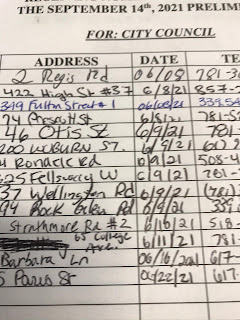 THE SEPTEMBER 14th, 2021 PRELIM
FOR: CITY COUNCIL
ADDRESS DATE TE
2 Regis Rd 06/08 781-3
422 High St #37 6/8/21 857-7
349 Fulton Street 1 339 54
St 781-5
46 Otis St 6/9/21 781
200 WOBURN ST. 6/9/21
Ronald Rd 6/9/21 508-4
625 Fellsway W 6/9/21 781-
37 Wellington Rd 6/9/21 (781)
94 Rock Glen Rd 6/9/21 339
Strathmore Rd #2 6/16/21 518-
65 College
Ave. 6/11/21 781
Barbara Ln 06/16/2021 617-
5 Paris St 617